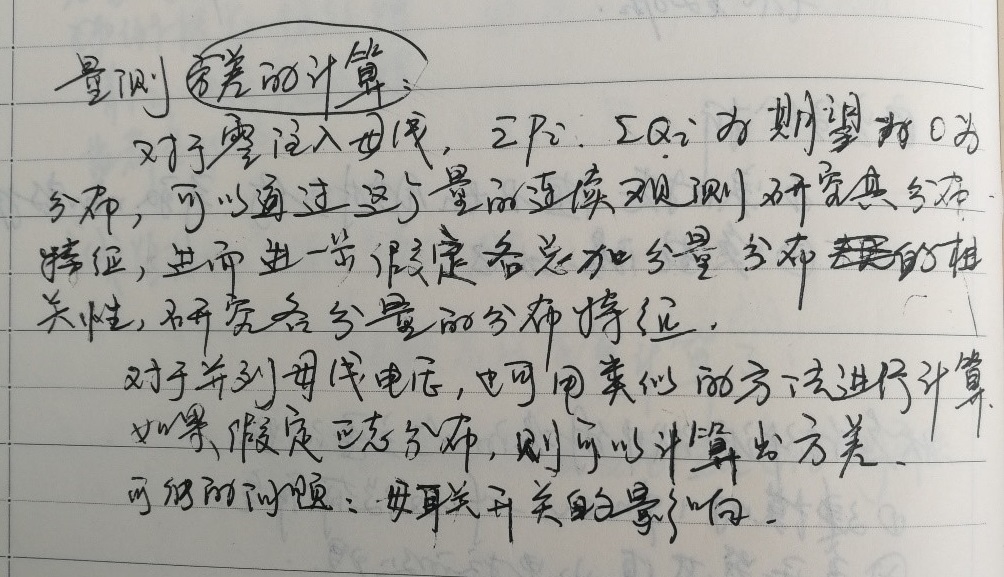 量测方差的计算:
对于零注入母线, ΣPi. ΣQi为期望为0为
分布, 可以通过这个量的连续观测研究其分布
特征, 进而进一步假定各总加分量分布的相
关性, 研究各分量的分布特征.
对于并列母线电压, 也可用类似的方法进行计算.
如果假定正态分布, 则可以计算出方差.
可能的问题: 母联开关的影响.